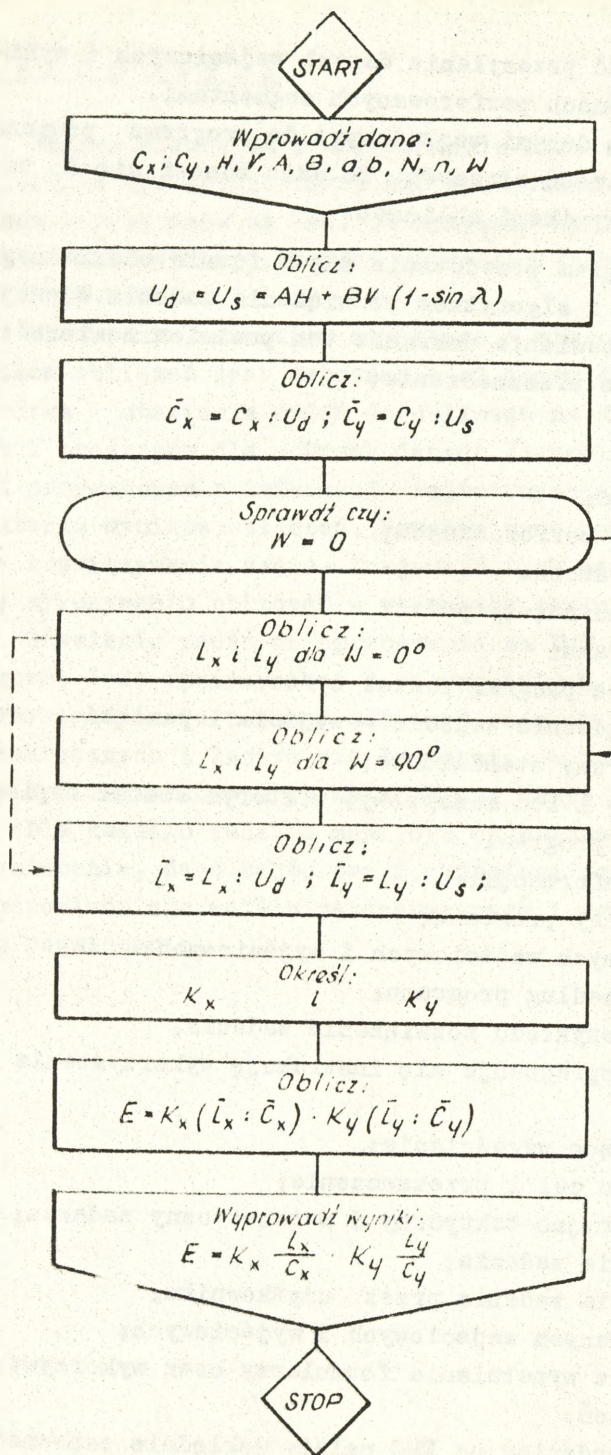 START
Wprowadź dane:
C_x; C_y, H, V, A, B, a, b, N, n, W
Oblicz:
U_d = U_s = AH + BV (1 - sin λ)
Oblicz:
C̄_x = C_x : U_d ; C̄_y = C_y : U_s
Sprawdź czy:
W = 0
Oblicz:
L_x i L_y dla W = 0°
Oblicz:
L_x i L_y dla W = 90°
Oblicz:
L̄_x = L_x : U_d ; L̄_y = L_y : U_s ;
Określ:
K_x i K_y
Oblicz:
E = K_x (L̄_x : C̄_x) · K_y (L̄_y : C̄_y)
Wyprowadź wyniki:
E = K_x L_x/C_x · K_y L_y/C_y
STOP